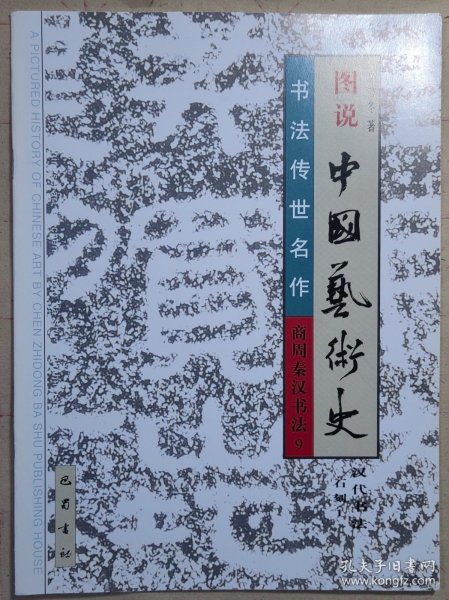 图说
中國藝術史
冬著
书法传世名作
商周秦汉书法9
汉代书法
石刻
巴蜀书社
A PICTURED HISTORY OF CHINESE ART BY CHEN ZHIDONG BA SHU PUBLISHING HOUSE
孔夫子旧书网
www.kongfz.com